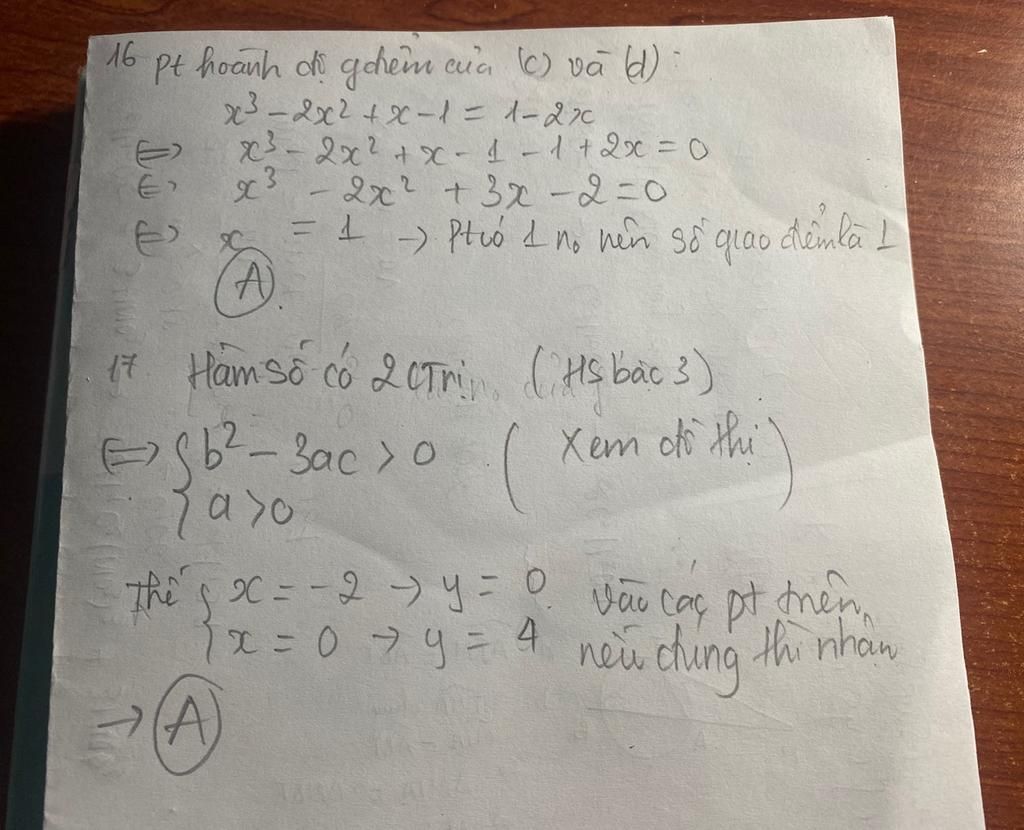 16 pt hoành độ gđiểm của (c) và (d):
x³ - 2x² + x - 1 = 1 - 2x
⇔ x³ - 2x² + x - 1 - 1 + 2x = 0
⇔ x³ - 2x² + 3x - 2 = 0
⇔ x = 1 → Pt có 1 no nên số giao điểm là 1
A.
17 Hàm số có 2 CTrị. (HS bậc 3)
⇔ { b² - 3ac > 0 (Xem đồ thị)
a > 0
Thế { x = -2 → y = 0 vào các pt trên,
x = 0 → y = 4 nếu đúng thì nhận
→ A